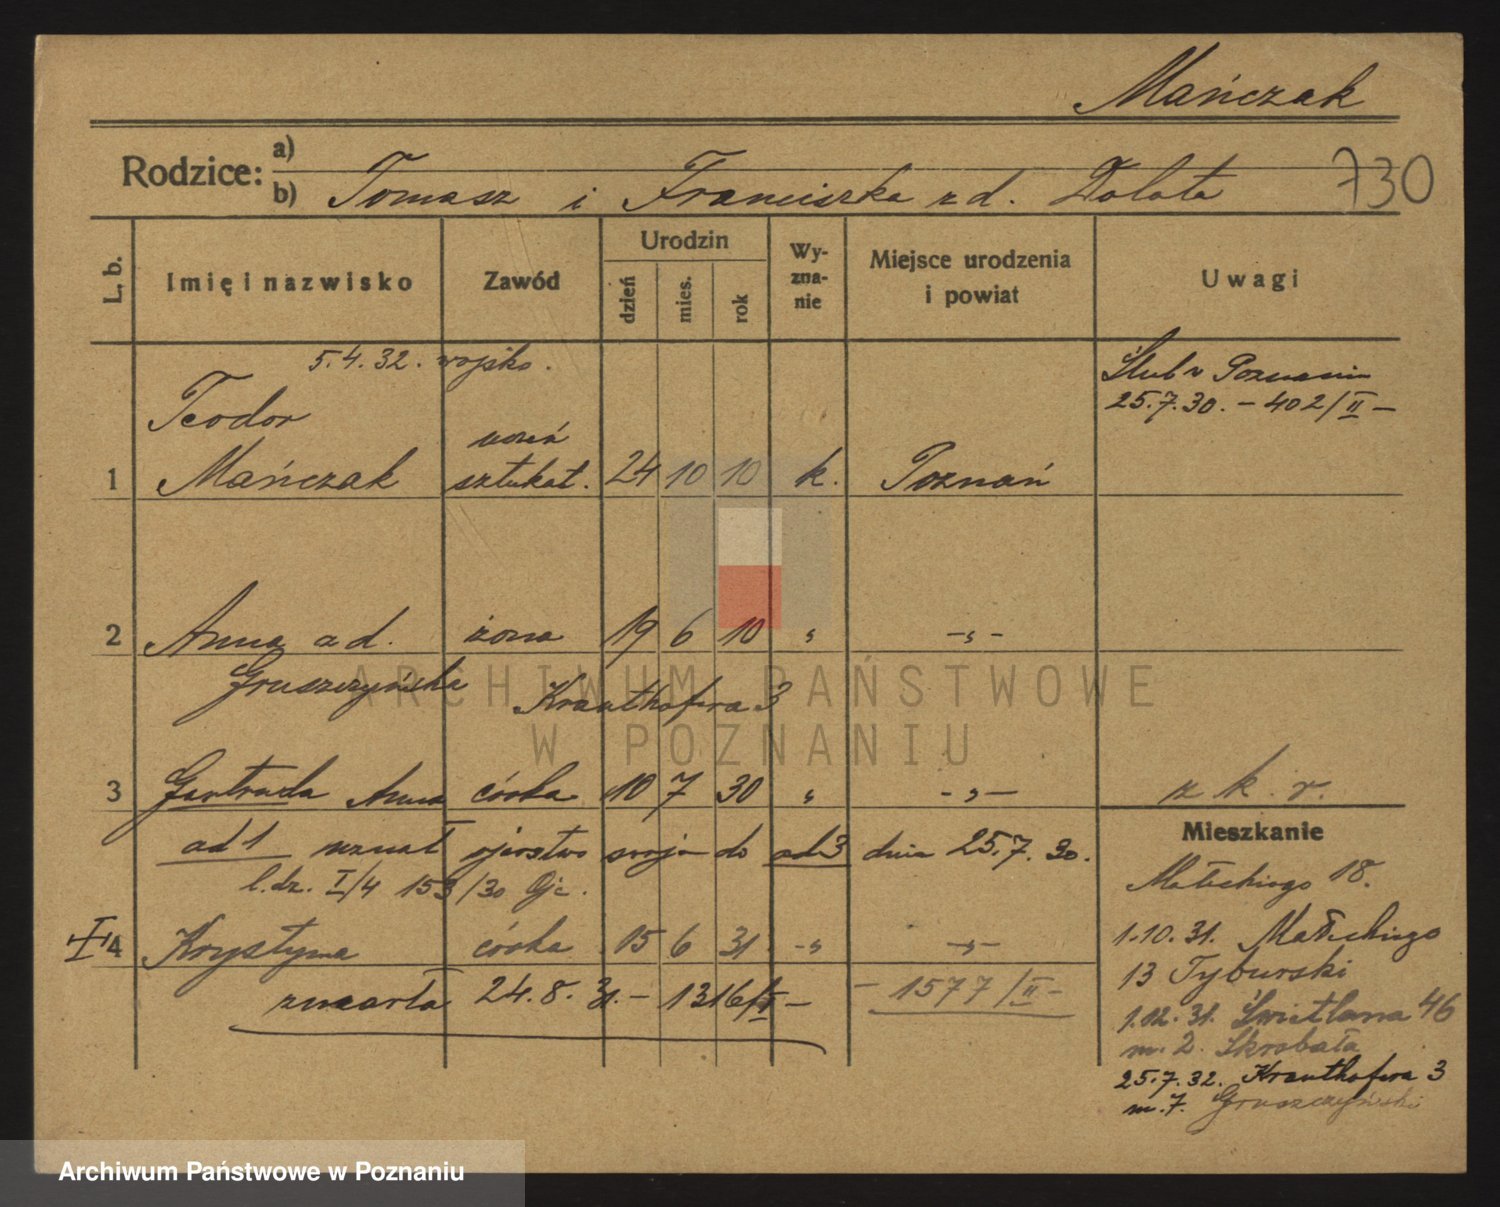 Mańczak
Rodzice: a)
b) Tomasz i Franciszka z d. Dolata 730
L. b. Imię i nazwisko Zawód Urodzin dzień mies. rok Wy-zna-nie Miejsce urodzenia i powiat Uwagi
5.4.32. wojsko.
Ślub w Poznaniu
25.7.30. - 402/II -
Teodor
uczeń
1 Mańczak sztukat. 24 10 10 k. Poznań
2 Anna z d. żona 19 6 10 " -"-
Gruszczyńska Krauthofera 3
3 Gertruda Anna córka 10 7 30 " -"- z k. r.
ad 1 uznał ojcostwo swoje do ad 3 dnia 25.7.30.
l. dz. I/4 153/30
4 Krystyna córka 15 6 31 -" -"-
zmarła 24.8.31. - 1316/II - - 1577/II -
Mieszkanie
Małeckiego 18.
1.10.31. Małeckiego
13 Tyburski
1.12.31. Świetlana 46
m. 2. Skrobała
25.7.32. Krauthofera 3
m. 7. Gruszczyński
ARCHIWUM PAŃSTWOWE
W POZNANIU
Archiwum Państwowe w Poznaniu